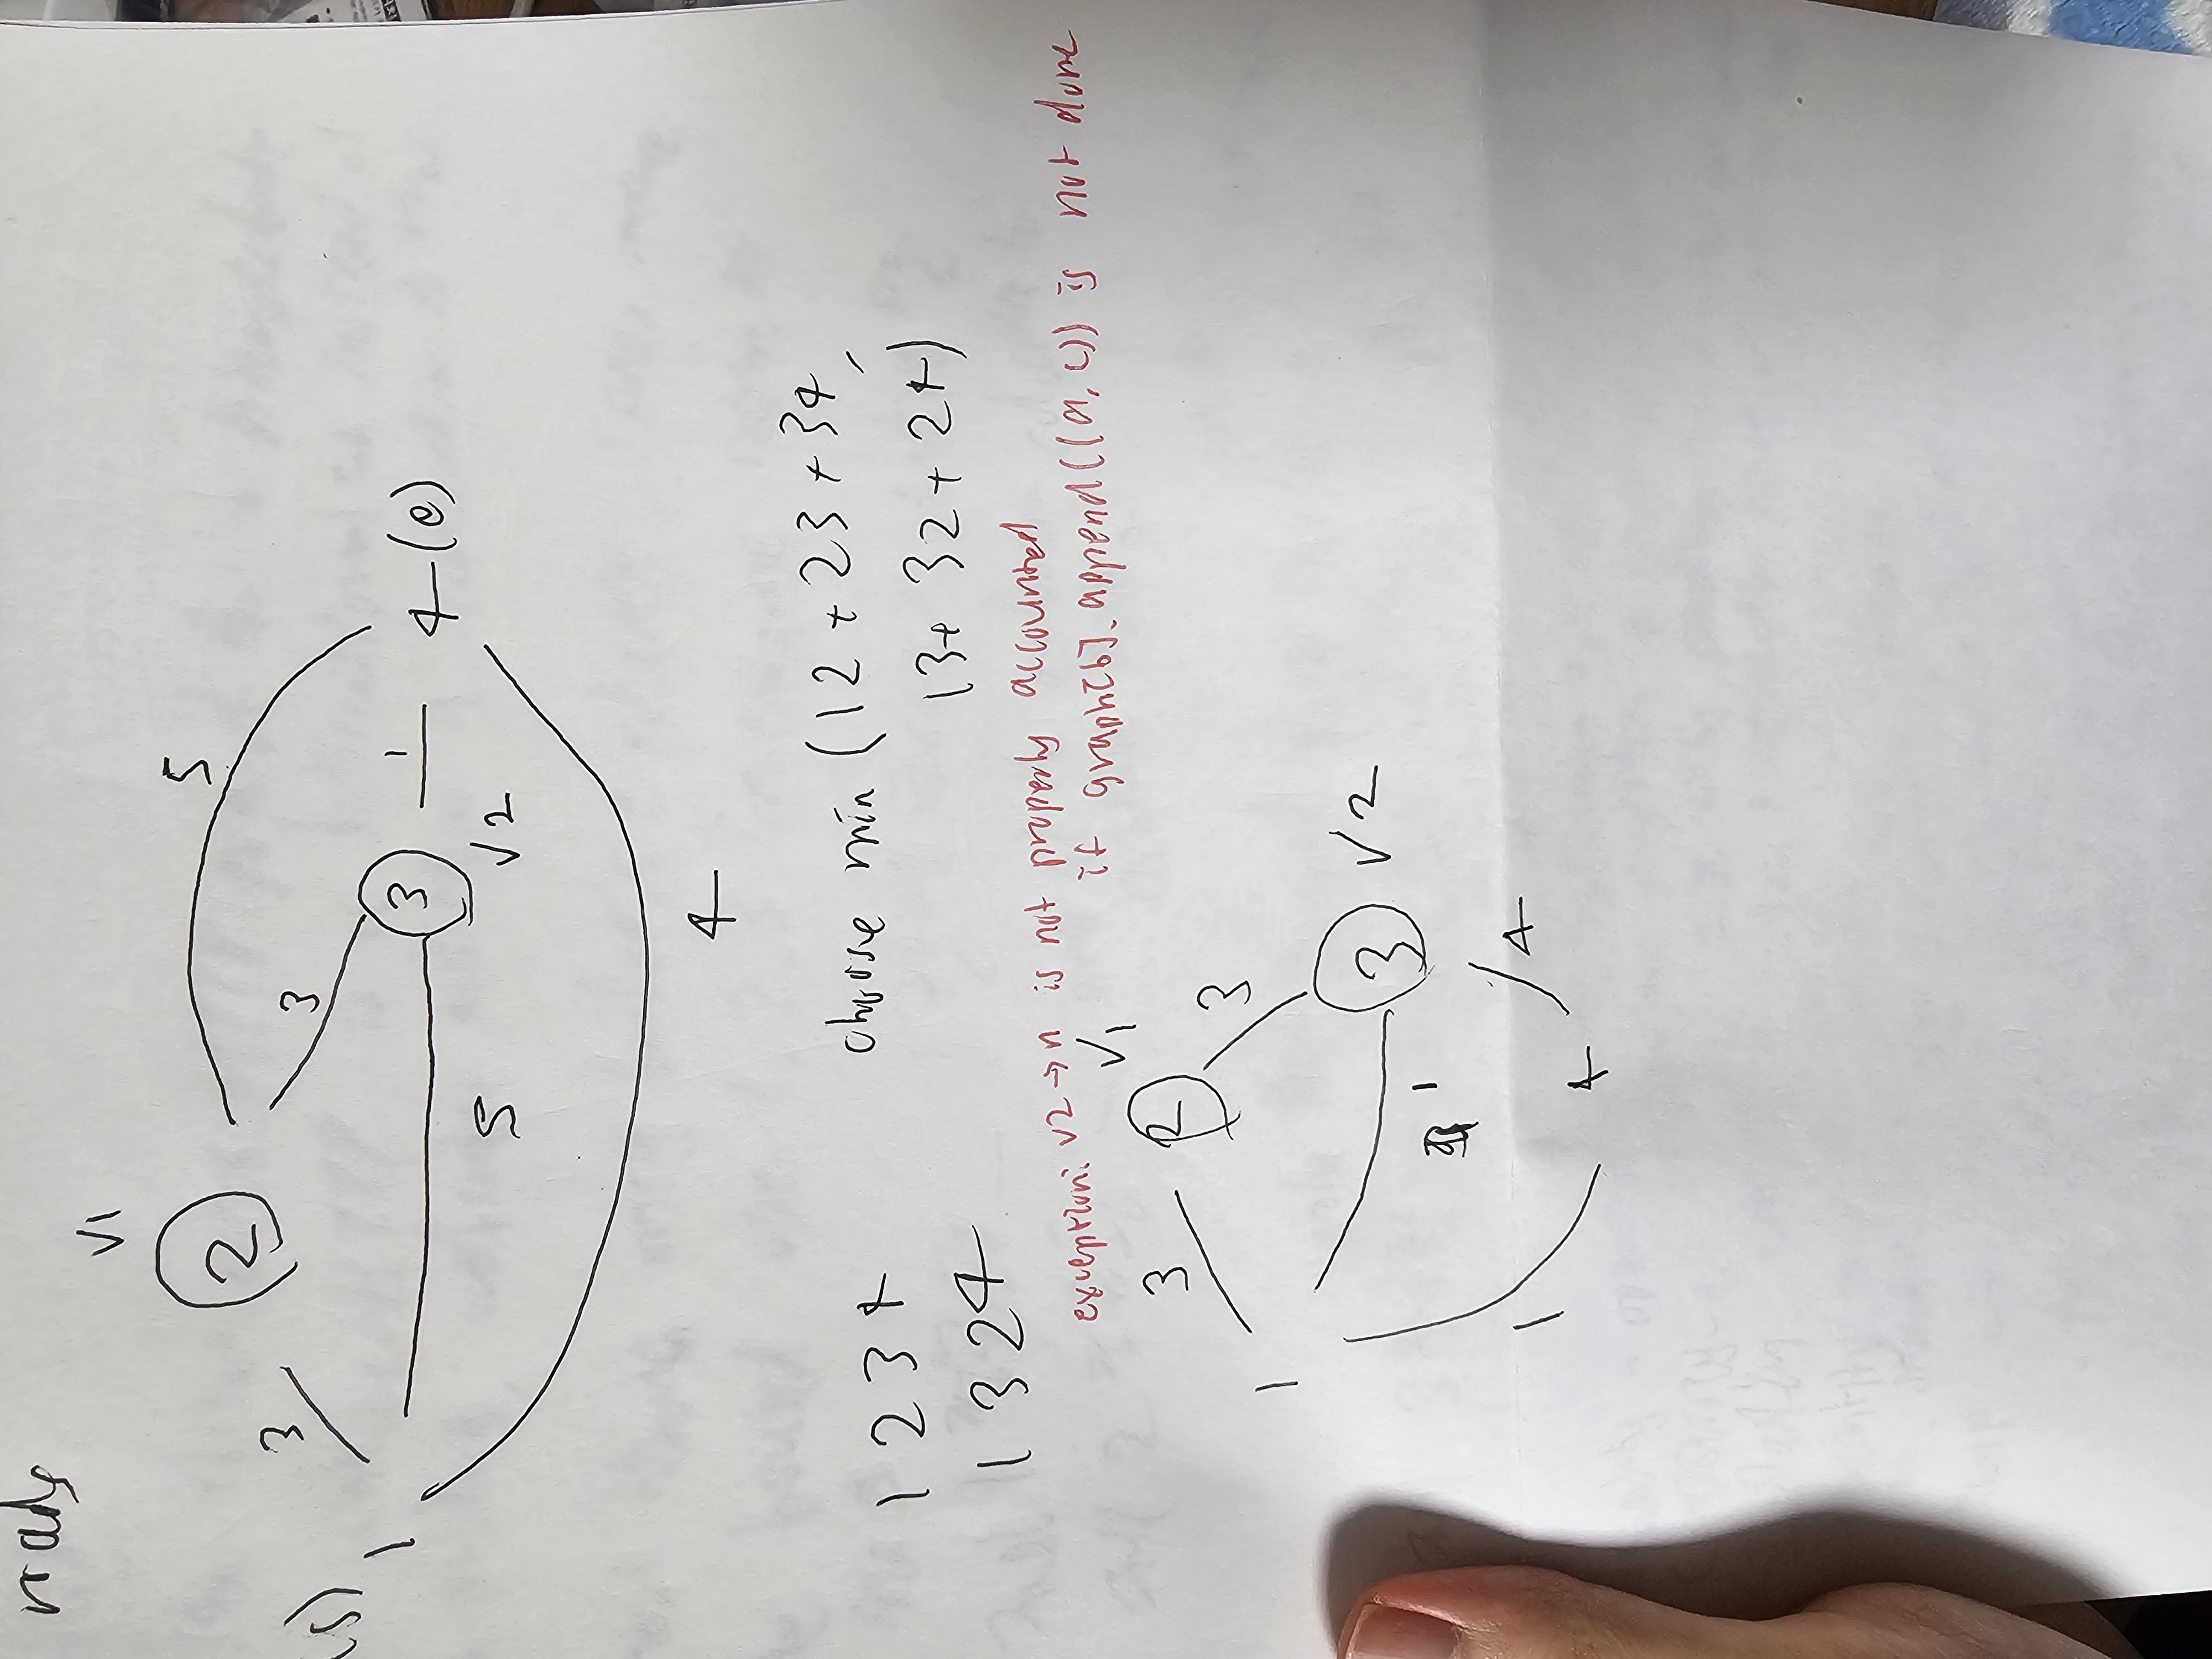 V1
2
5
3
3
(s) 1
3
1
4-(e)
V2
5
4
1 2 3 4
choose min (12 + 23 + 34,
1 3 2 4
13 + 32 + 24)
exception: v2 → n is not properly accounted
if graph[b].append((a, c)) is not done
V1
3
2
3
1
3
V2
1
4
1
4